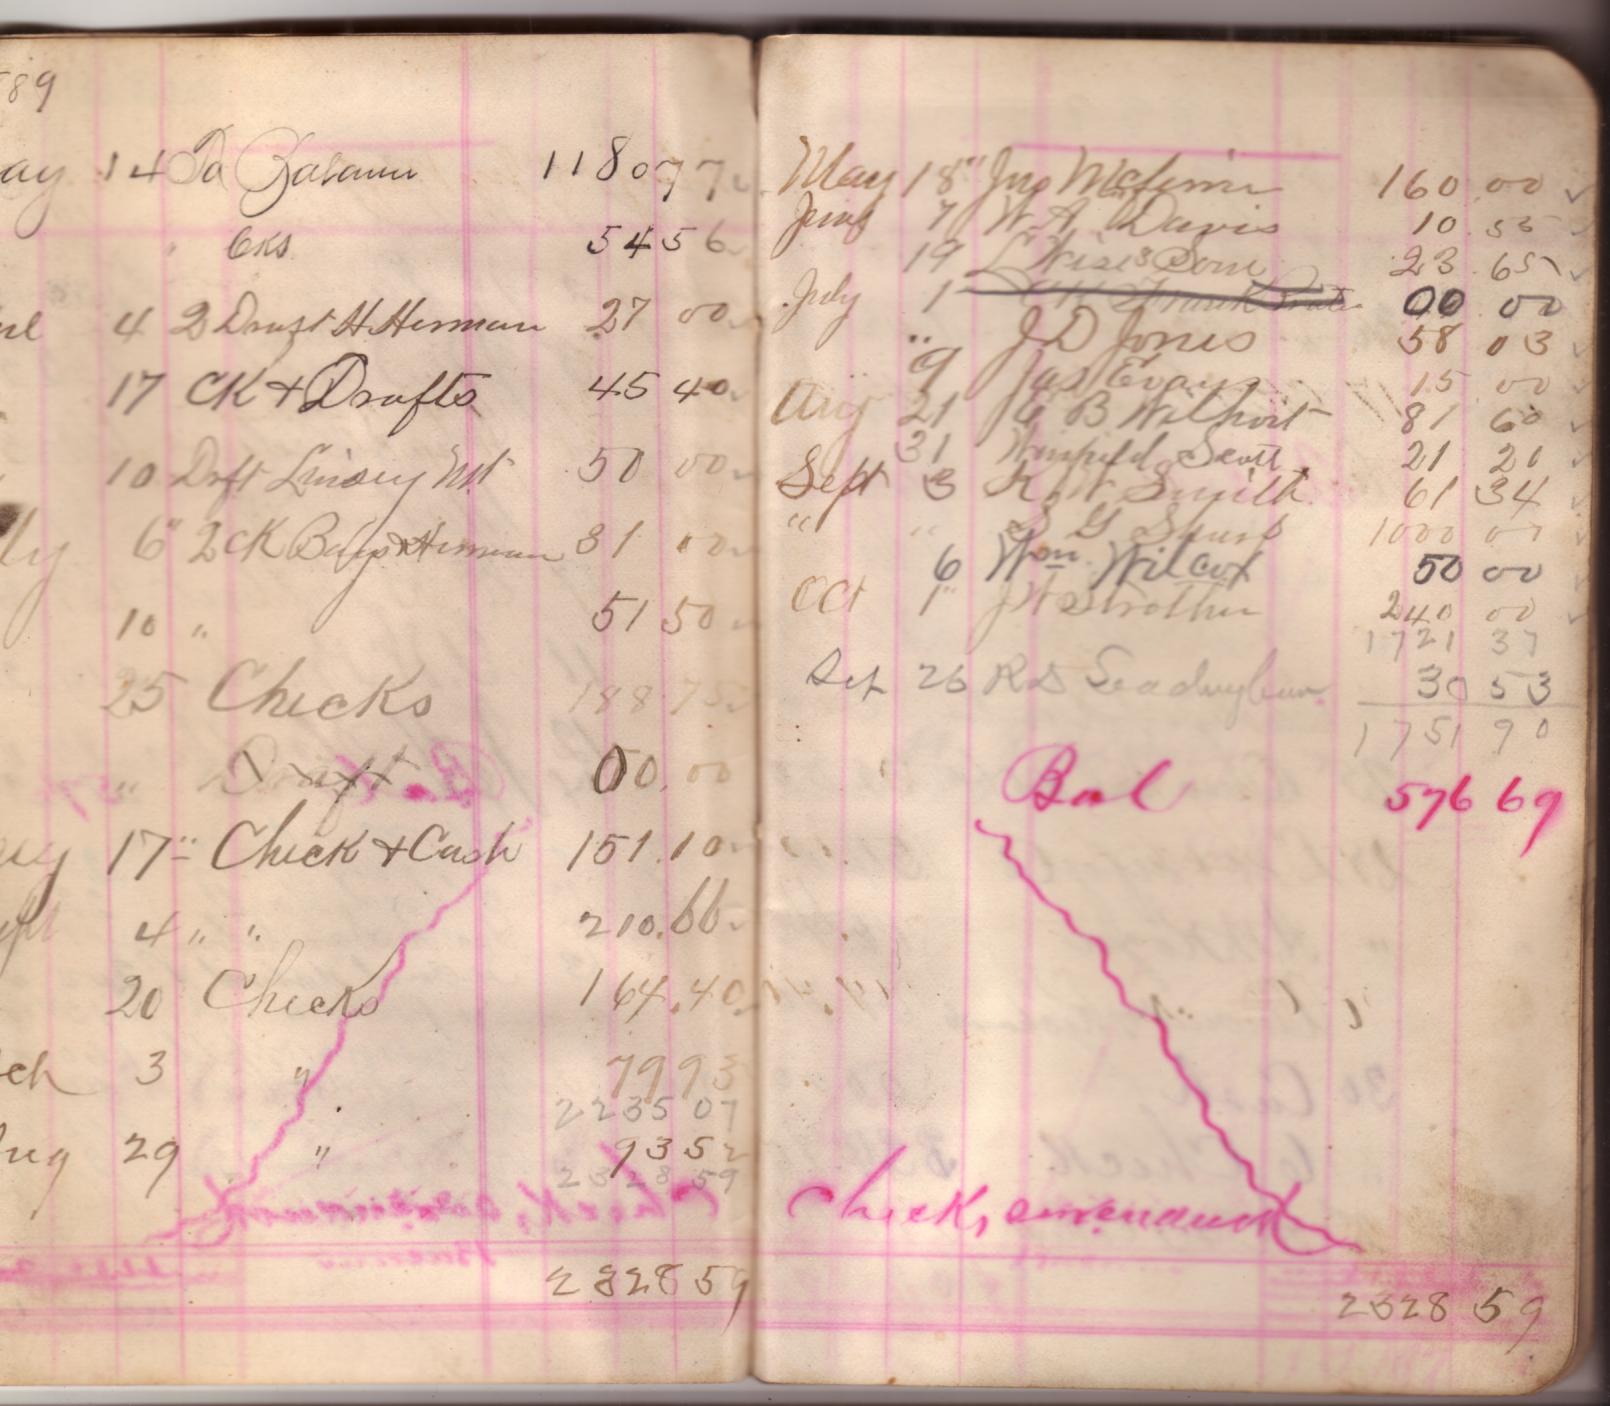 89
ay 14 To Balance 1180 77
" Cks 54 56
4 2 Draft H. Herman 27 00
17 CK + Drafts 45 40
10 Drft Linsey 50 00
ly 6" 2 CK Bays & Herman 31 00
10 " 51 50
25 Checks 188 75
" Draft 00.00
17" Check + Cash 151.10
4 " " 210.66
20 Checks 164.40
ch 3 " 79 93
2235 07
ug 29 " 93 52
2328 59
2328 59
May 18" Jno 160 00
June 7 W. A. Davis 10.55
19 L Wise & Sons 23.65
July 1 Frank 00 00
" J D Jones 58 03
9 Jas Evans 15 00
Aug 21 B Wilhoit 81 60
31 Winfield Scott 21 20
Sept 3 Smith 61 34
" " S G Sharp 1000 00
6 Wm. Wilcox 50 00
Oct 1" J W Strother 240 00
1721 37
Sept 26 R D 30 53
1751 90
Bal 576 69
Checks surrendered
2328 59